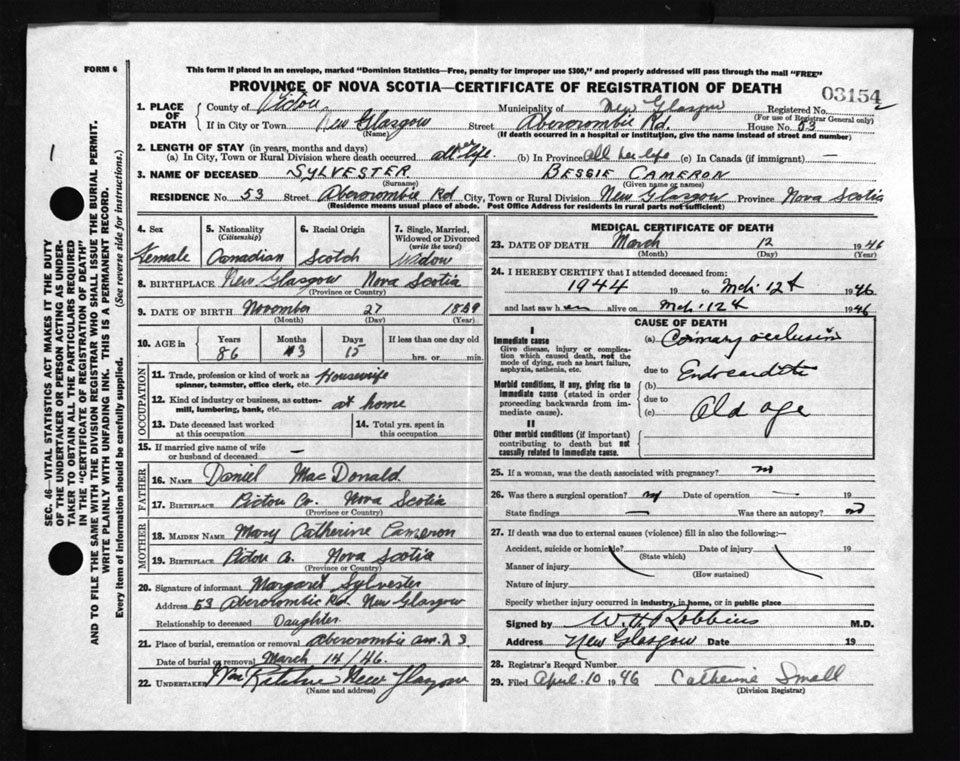 FORM 6
This form if placed in an envelope, marked "Dominion Statistics—Free, penalty for improper use $300," and properly addressed will pass through the mail "FREE"
PROVINCE OF NOVA SCOTIA—CERTIFICATE OF REGISTRATION OF DEATH
03154
1. PLACE OF DEATH
County of Pictou Municipality of New Glasgow Registered No.
(For use of Registrar General only)
If in City or Town New Glasgow Street Abercrombie Rd. House No. 53
(Name) (If death occurred in a hospital or institution, give the name instead of street and number)
2. LENGTH OF STAY (in years, months and days)
(a) In City, Town or Rural Division where death occurred all her life. (b) In Province All her life (c) In Canada (if immigrant) —
3. NAME OF DECEASED SYLVESTER BESSIE CAMERON
(Surname) (Given name or names)
RESIDENCE No. 53 Street Abercrombie Rd City, Town or Rural Division New Glasgow Province Nova Scotia
(Residence means usual place of abode. Post Office Address for residents in rural parts not sufficient)
4. Sex
Female
5. Nationality (Citizenship)
Canadian
6. Racial Origin
Scotch
7. Single, Married, Widowed or Divorced (write the word)
Widow
8. BIRTHPLACE New Glasgow Nova Scotia
(Province or Country)
9. DATE OF BIRTH November 27 1859
(Month) (Day) (Year)
10. AGE in Years Months Days If less than one day old
86 3 15 hrs. or min.
OCCUPATION
11. Trade, profession or kind of work as spinner, teamster, office clerk, etc. Housewife
12. Kind of industry or business, as cotton-mill, lumbering, bank, etc. at home
13. Date deceased last worked at this occupation
14. Total yrs. spent in this occupation
15. If married give name of wife or husband of deceased —
FATHER
16. NAME Daniel MacDonald
17. BIRTHPLACE Pictou Co. Nova Scotia
(Province or Country)
MOTHER
18. MAIDEN NAME Mary Catherine Cameron
19. BIRTHPLACE Pictou Co. Nova Scotia
(Province or Country)
20. Signature of informant Margaret Sylvester
Address 53 Abercrombie Rd. New Glasgow
Relationship to deceased Daughter
21. Place of burial, cremation or removal Abercrombie
Date of burial or removal March 14/46.
22. UNDERTAKER New Glasgow
(Name and address)
MEDICAL CERTIFICATE OF DEATH
23. DATE OF DEATH March 12 1946
(Month) (Day) (Year)
24. I HEREBY CERTIFY that I attended deceased from:
1944 19 to Mch 12th 1946
and last saw her alive on Mch 12th 1946
CAUSE OF DEATH
I
Immediate cause
Give disease, injury or complication which caused death, not the mode of dying, such as heart failure, asphyxia, asthenia, etc.
(a) Coronary occlusion
due to
Morbid conditions, if any, giving rise to immediate cause (stated in order proceeding backwards from immediate cause).
(b) Endocarditis
due to
(c) Old age
II
Other morbid conditions (if important) contributing to death but not causally related to immediate cause.
25. If a woman, was the death associated with pregnancy? no
26. Was there a surgical operation? no Date of operation — 19
State findings — Was there an autopsy? no
27. If death was due to external causes (violence) fill in also the following:—
Accident, suicide or homicide? Date of injury 19
(State which)
Manner of injury
(How sustained)
Nature of injury
Specify whether injury occurred in industry, in home, or in public place
Signed by W. H. Robbins M.D.
Address New Glasgow Date 19
28. Registrar's Record Number
29. Filed April 10 1946 Catherine Small
(Division Registrar)
SEC. 46—VITAL STATISTICS ACT MAKES IT THE DUTY
OF THE UNDERTAKER OR PERSON ACTING AS UNDER-
TAKER TO OBTAIN ALL THE PARTICULARS REQUIRED
IN THE "CERTIFICATE OF REGISTRATION OF DEATH"
AND TO FILE THE SAME WITH THE DIVISION REGISTRAR WHO SHALL ISSUE THE BURIAL PERMIT.
WRITE PLAINLY WITH UNFADING INK. THIS IS A PERMANENT RECORD.
Every item of information should be carefully supplied. (See reverse side for instructions.)